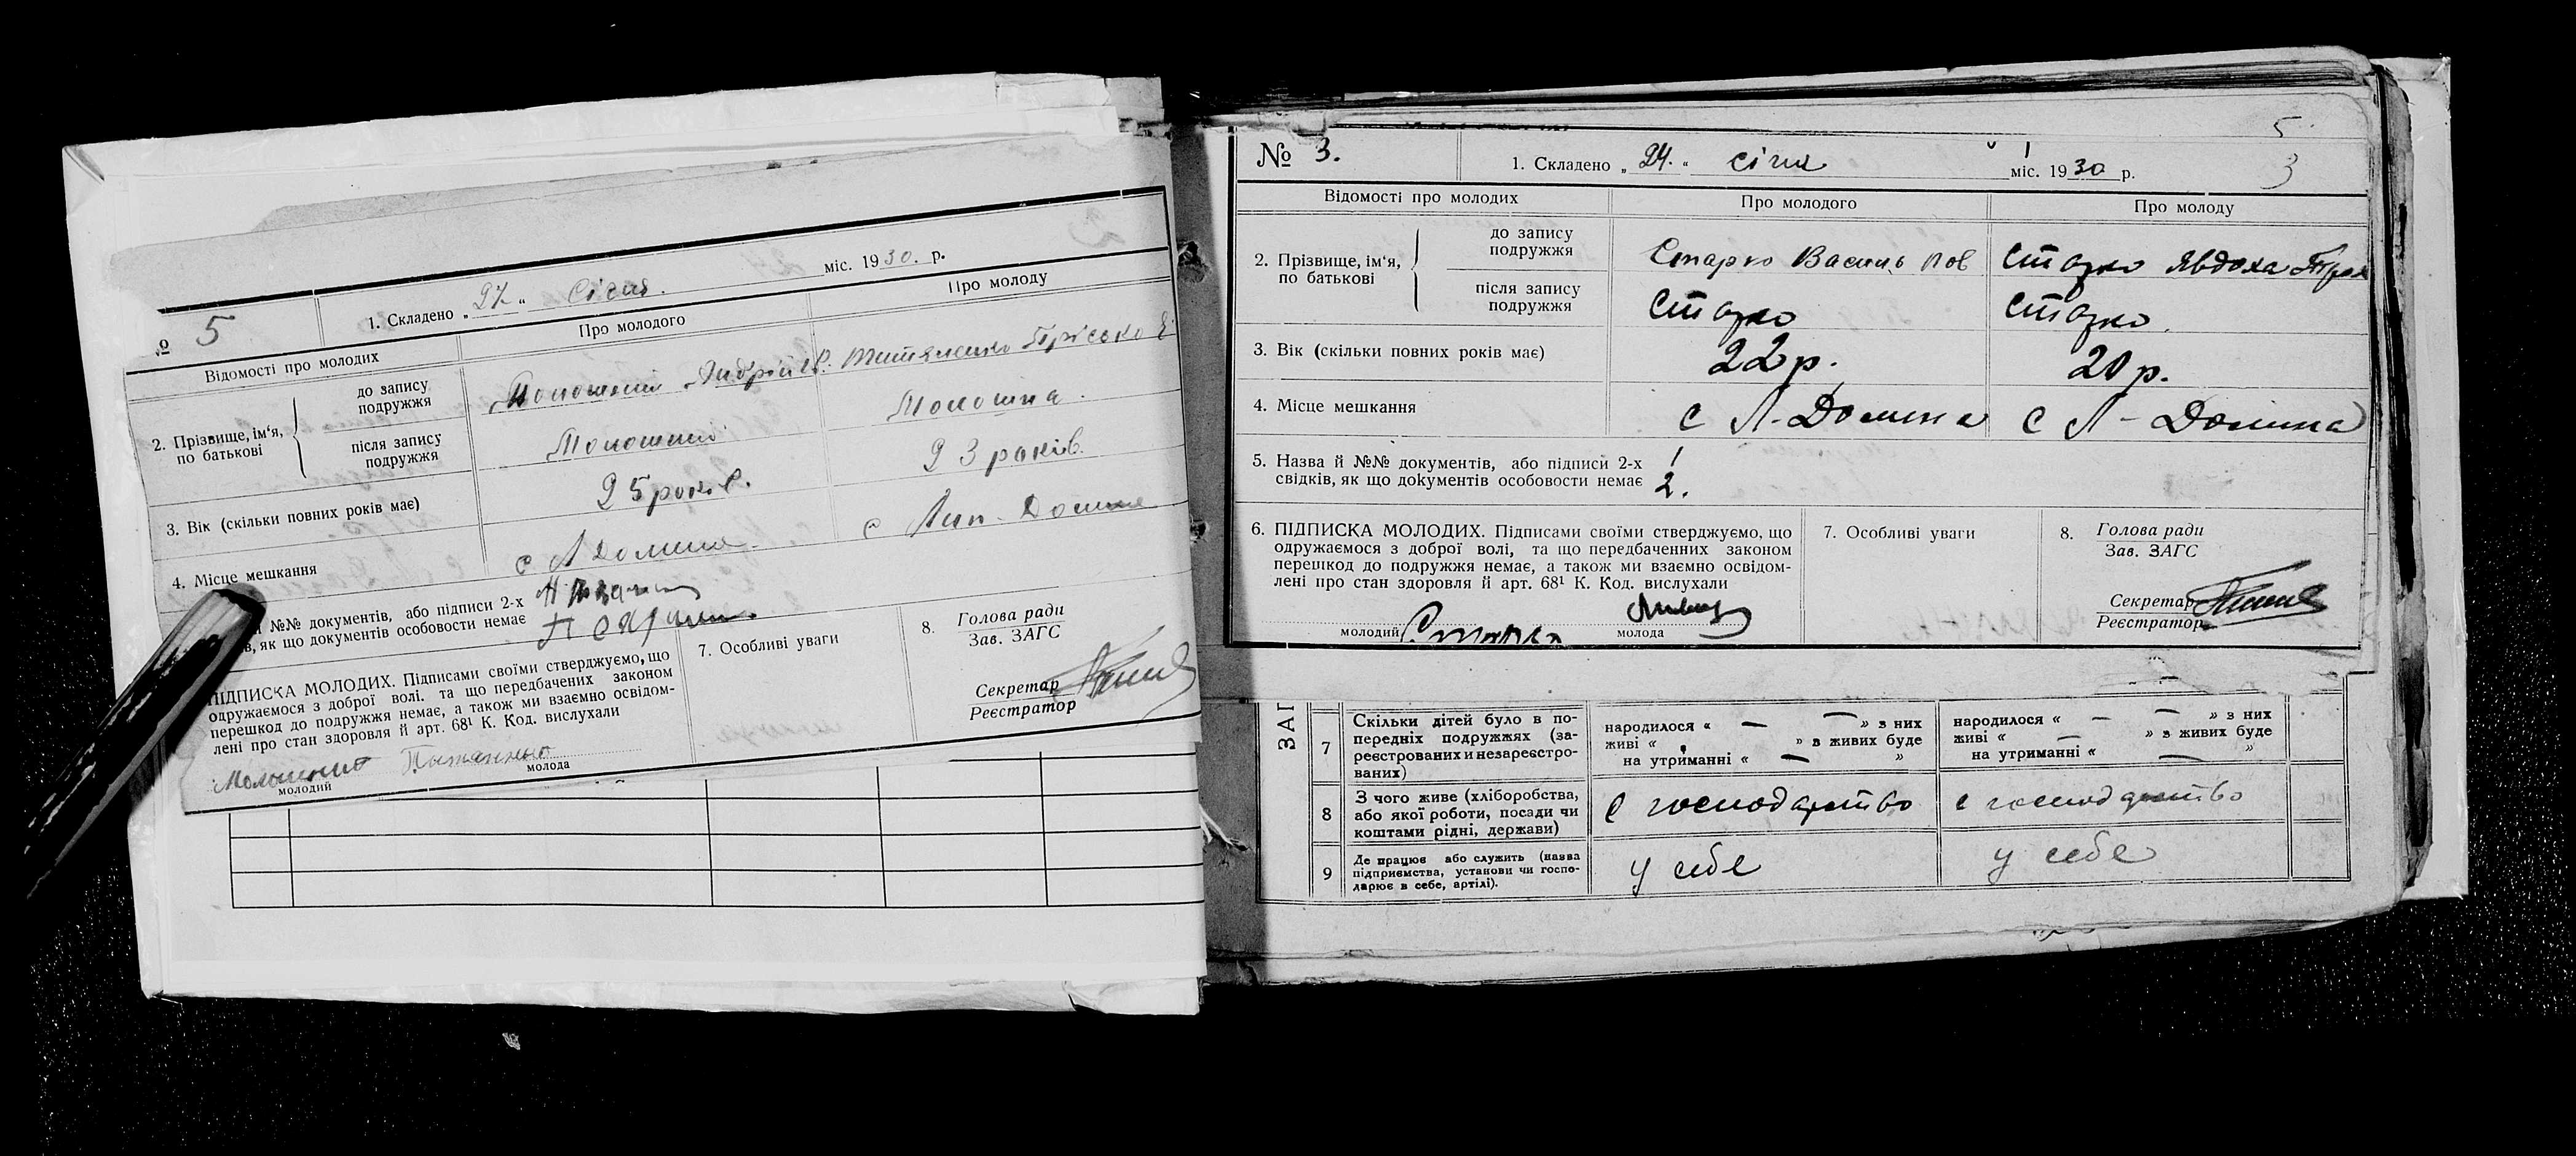 № 5
1. Складено „ 27 “ Січня. міс. 1930. р.
Відомості про молодих
Про молодого
Про молоду
2. Прізвище, ім‘я, по батькові
до запису подружжя
Андрій
після запису подружжя
3. Вік (скільки повних років має)
25 років.
23 років.
4. Місце мешкання
с Л Долина
с Лип-Долина
№№ документів, або підписи 2-х
як що документів особовости немає
ПІДПИСКА МОЛОДИХ. Підписами своїми стверджуємо, що
одружаємося з доброї волі, та що передбачених законом
перешкод до подружжя немає, а також ми взаємно освідом-
лені про стан здоровля й арт. 68¹ К. Код. вислухали
молодий
молода
7. Особливі уваги
8. Голова ради
Зав. ЗАГС
Секретар
Реєстратор
5
3
№ 3.
1. Складено „ 24. “ січня міс. 1930 р.
Відомості про молодих
Про молодого
Про молоду
2. Прізвище, ім‘я, по батькові
до запису подружжя
Старко Василь Пов
Старко Явдоха
після запису подружжя
Старко
Старко.
3. Вік (скільки повних років має)
22 р.
20 р.
4. Місце мешкання
с Л-Долина
с Л-Долина
5. Назва й №№ документів, або підписи 2-х
свідків, як що документів особовости немає
1
2.
6. ПІДПИСКА МОЛОДИХ. Підписами своїми стверджуємо, що
одружаємося з доброї волі, та що передбаченних законом
перешкод до подружжя немає, а також ми взаємно освідом-
лені про стан здоровля й арт. 68¹ К. Код. вислухали
молодий Старко
молода
7. Особливі уваги
8. Голова ради
Зав. ЗАГС
Секретар
Реєстратор
ЗАГ
7
Скільки дітей було в по-
передніх подружжях (за-
реєстрованих и незареєстро-
ваних)
народилося « — — » з них
живі « » з живих буде
на утриманні « — »
народилося « — — » з них
живі « — » з живих буде
на утриманні « — »
8
З чого живе (хліборобства,
або якої роботи, посади чи
коштами рідні, держави)
с господарство
с господарство
9
Де працює або служить (назва
підприємства, установи чи госпо-
дарює в себе, артілі).
у себе
у себе